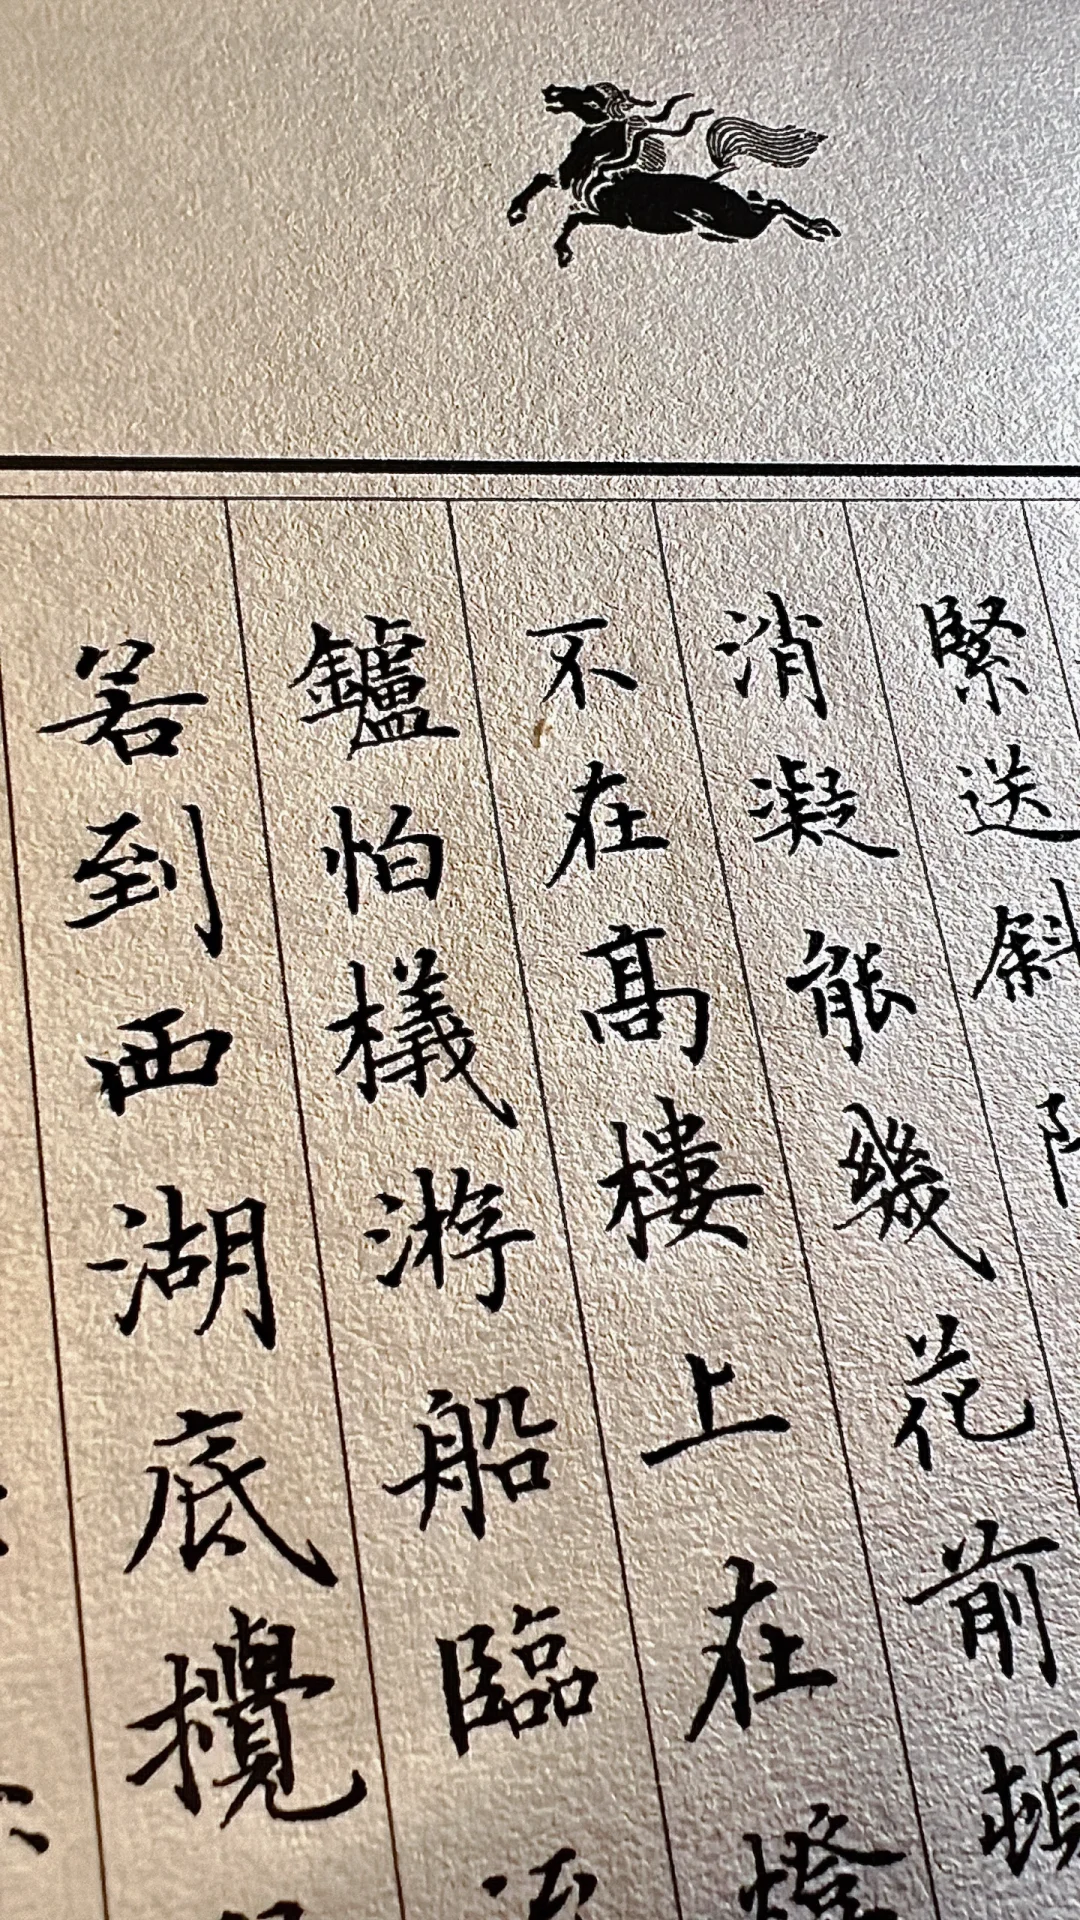 緊送斜
消凝能幾花前頓
不在高樓上在燈
鑪怕檥游船臨
若到西湖底攪